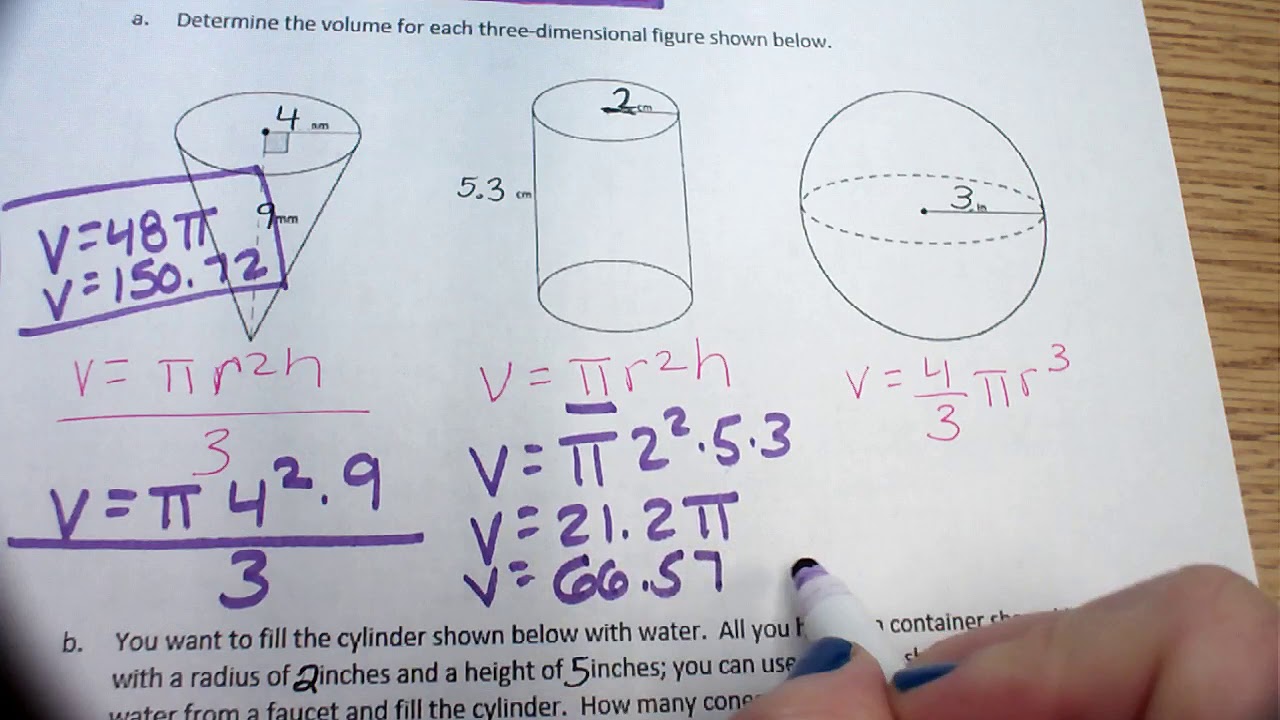 a. Determine the volume for each three-dimensional figure shown below.
4 mm
2 cm
5.3 cm
9 mm
3 in
V=48π
V=150.72
V = πr²h
3
V = π 4² · 9
3
V = πr²h
V = π 2² · 5.3
V = 21.2π
V = 66.57
V = 4/3 πr³
b. You want to fill the cylinder shown below with water. All you container
with a radius of 2 inches and a height of 5 inches; you can use
water from a faucet and fill the cylinder. How many